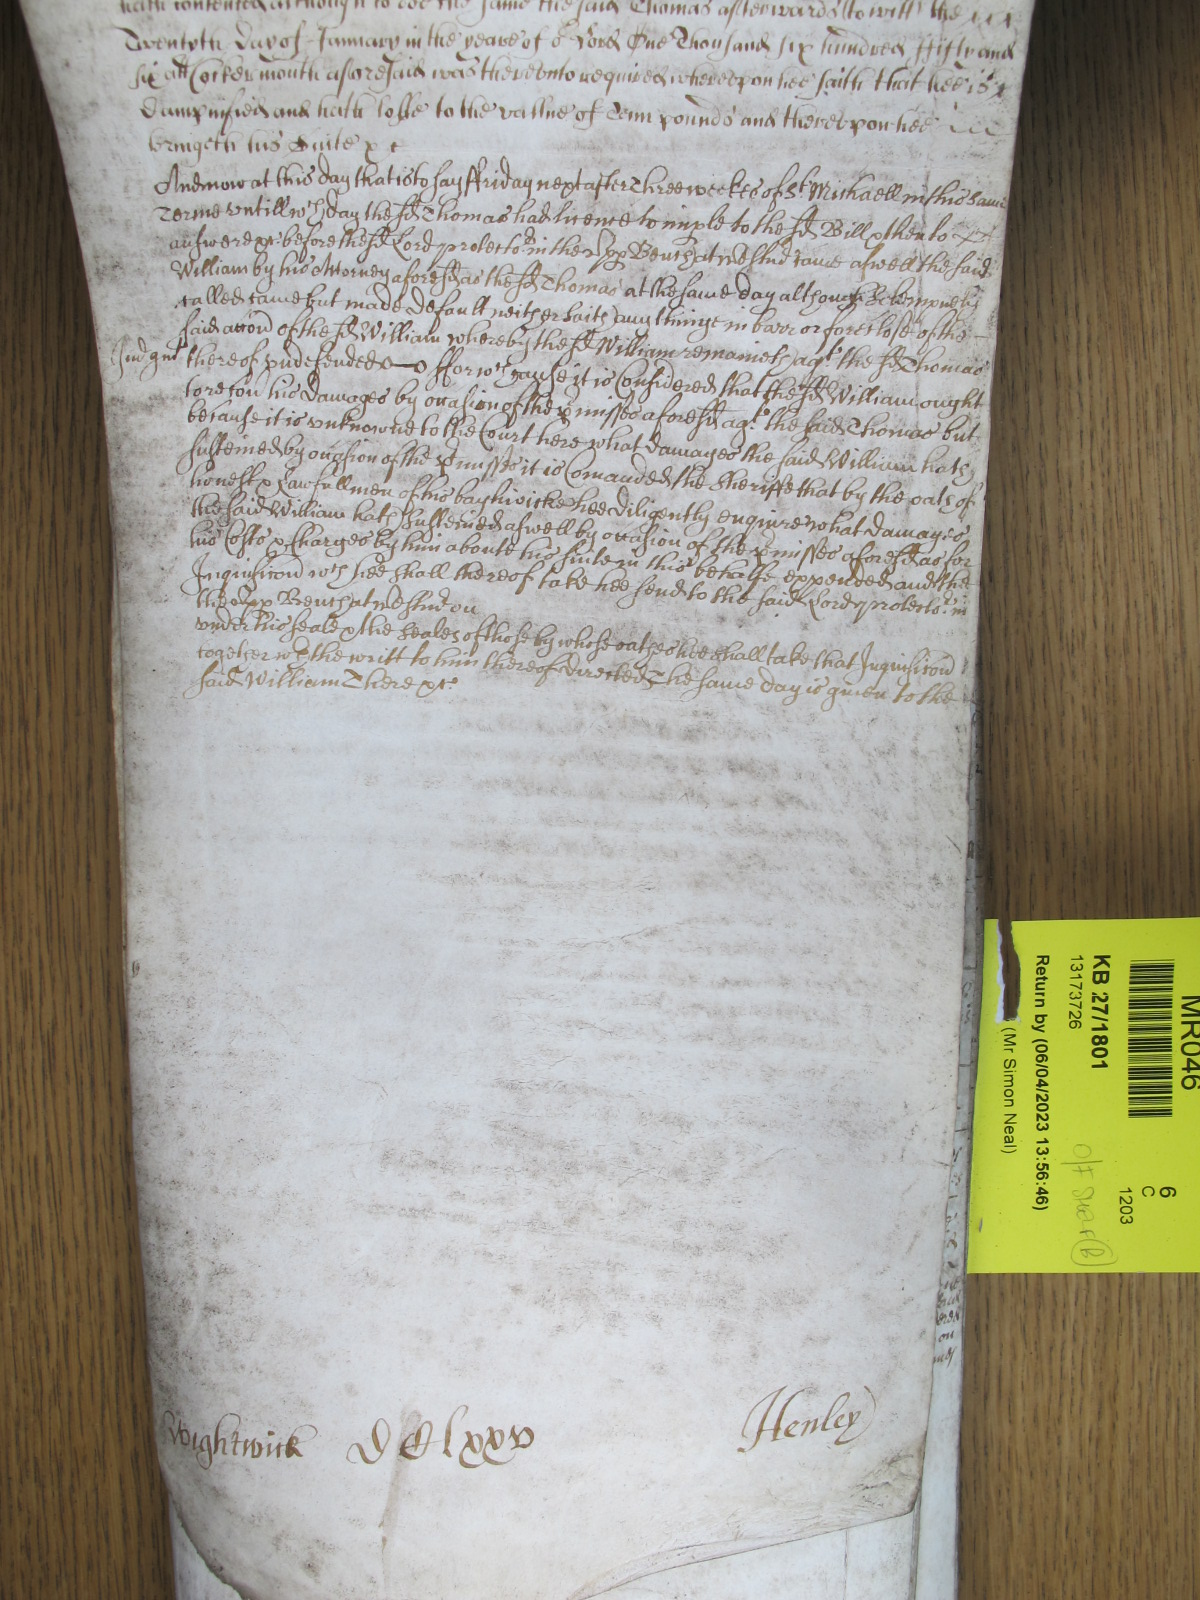 hath contented although to doe the same the said Thomas afterwards to witt the
Twentyth day of January in the yeare of oʳ Lord One Thousand six hundred ffifty and
six att Cockermouth aforesaid was therevnto required wherevpon hee saith that hee is
dampnified and hath losse to the vallue of Tenn pounds and therevpon hee
bringeth his Suite &c
And now at this day that is to say ffriday next after Three weekes of Sᵗ Michaell in this same
Terme vntill wᶜʰ day the sᵈ Thomas had licence to imple to the sᵈ Bill & then to
answere &c before the sᵈ Lord protectoʳ in the vpp Bench at westmʳ came aswell the said
William by his Attorney aforesᵈ as the sᵈ Thomas at the same day although solempnely
called came but made default neither saith any thinge in barr or foreclose of the
said accon of the sᵈ William whereby the sᵈ William remaineth agᵗ the sᵈ Thomas
Judgmᵗ thereof vndefended ffor wᶜʰ cause it is Considered that the sᵈ William ought
to recou his damages by occasion of the pmisses aforesᵈ agᵗ the said Thomas but
because it is vnknowne to the Court here what damages the said William hath
susteined by occasion of the pmisses it is Comanded the Sheriffe that by the oath of
honest & lawfull men of his baylywicke hee diligently enquire what damages
the said William hath susteined aswell by occasion of the pmisses aforesᵈ as for
his Costs & Charges by him aboute his suite in this behalfe expended and the
Inquisicon wᶜʰ hee shall thereof take hee send to the said Lord protectoʳ in
the vpp Bench at westmʳ on
vnder his seale & the seales of those by whose oathes hee shall take that Inquisicon
together wᵗʰ the writt to him thereof directed The same day is given to the
said William There &c
Wightwick DClxxv Henley
MR046
6
C
1203
KB 27/1801
13173726
Return by (06/04/2023 13:56:46)
(Mr Simon Neal)